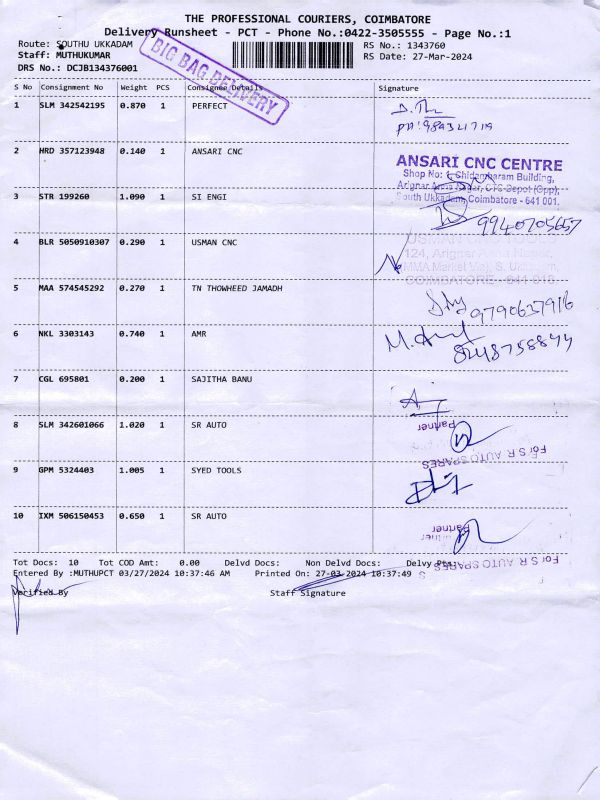 THE PROFESSIONAL COURIERS, COIMBATORE
Delivery Runsheet - PCT - Phone No.:0422-3505555 - Page No.:1
Route: SOUTHU UKKADAM RS No.: 1343760
Staff: MUTHUKUMAR RS Date: 27-Mar-2024
DRS No.: DCJB134376001
BIG BAG DELIVERY
S No Consignment No Weight PCS Consignee Details Signature
1 SLM 342542195 0.870 1 PERFECT
2 HRD 357123948 0.140 1 ANSARI CNC
ANSARI CNC CENTRE
Shop No: 1, Chidambaram Building,
Arignar Anna Nagar, CTC Depot (Opp),
South Ukkadam, Coimbatore - 641 001.
3 STR 199260 1.090 1 SI ENGI
9940705657
4 BLR 5050910307 0.290 1 USMAN CNC
USMAN
124, Arignar Anna Nagar,
COIMBATORE - 641
5 MAA 574545292 0.270 1 TN THOWHEED JAMADH
9790637916
6 NKL 3303143 0.740 1 AMR
8248758844
7 CGL 695801 0.200 1 SAJITHA BANU
8 SLM 342601066 1.020 1 SR AUTO
Partner
For S R AUTO SPARES
9 GPM 5324403 1.005 1 SYED TOOLS
10 IXM 506150453 0.650 1 SR AUTO
Partner
For S R AUTO SPARES
Tot Docs: 10 Tot COD Amt: 0.00 Delvd Docs: Non Delvd Docs: Delvy Pts:
Entered By :MUTHUPCT 03/27/2024 10:37:46 AM Printed On: 27-03-2024 10:37:49
Verified By Staff Signature